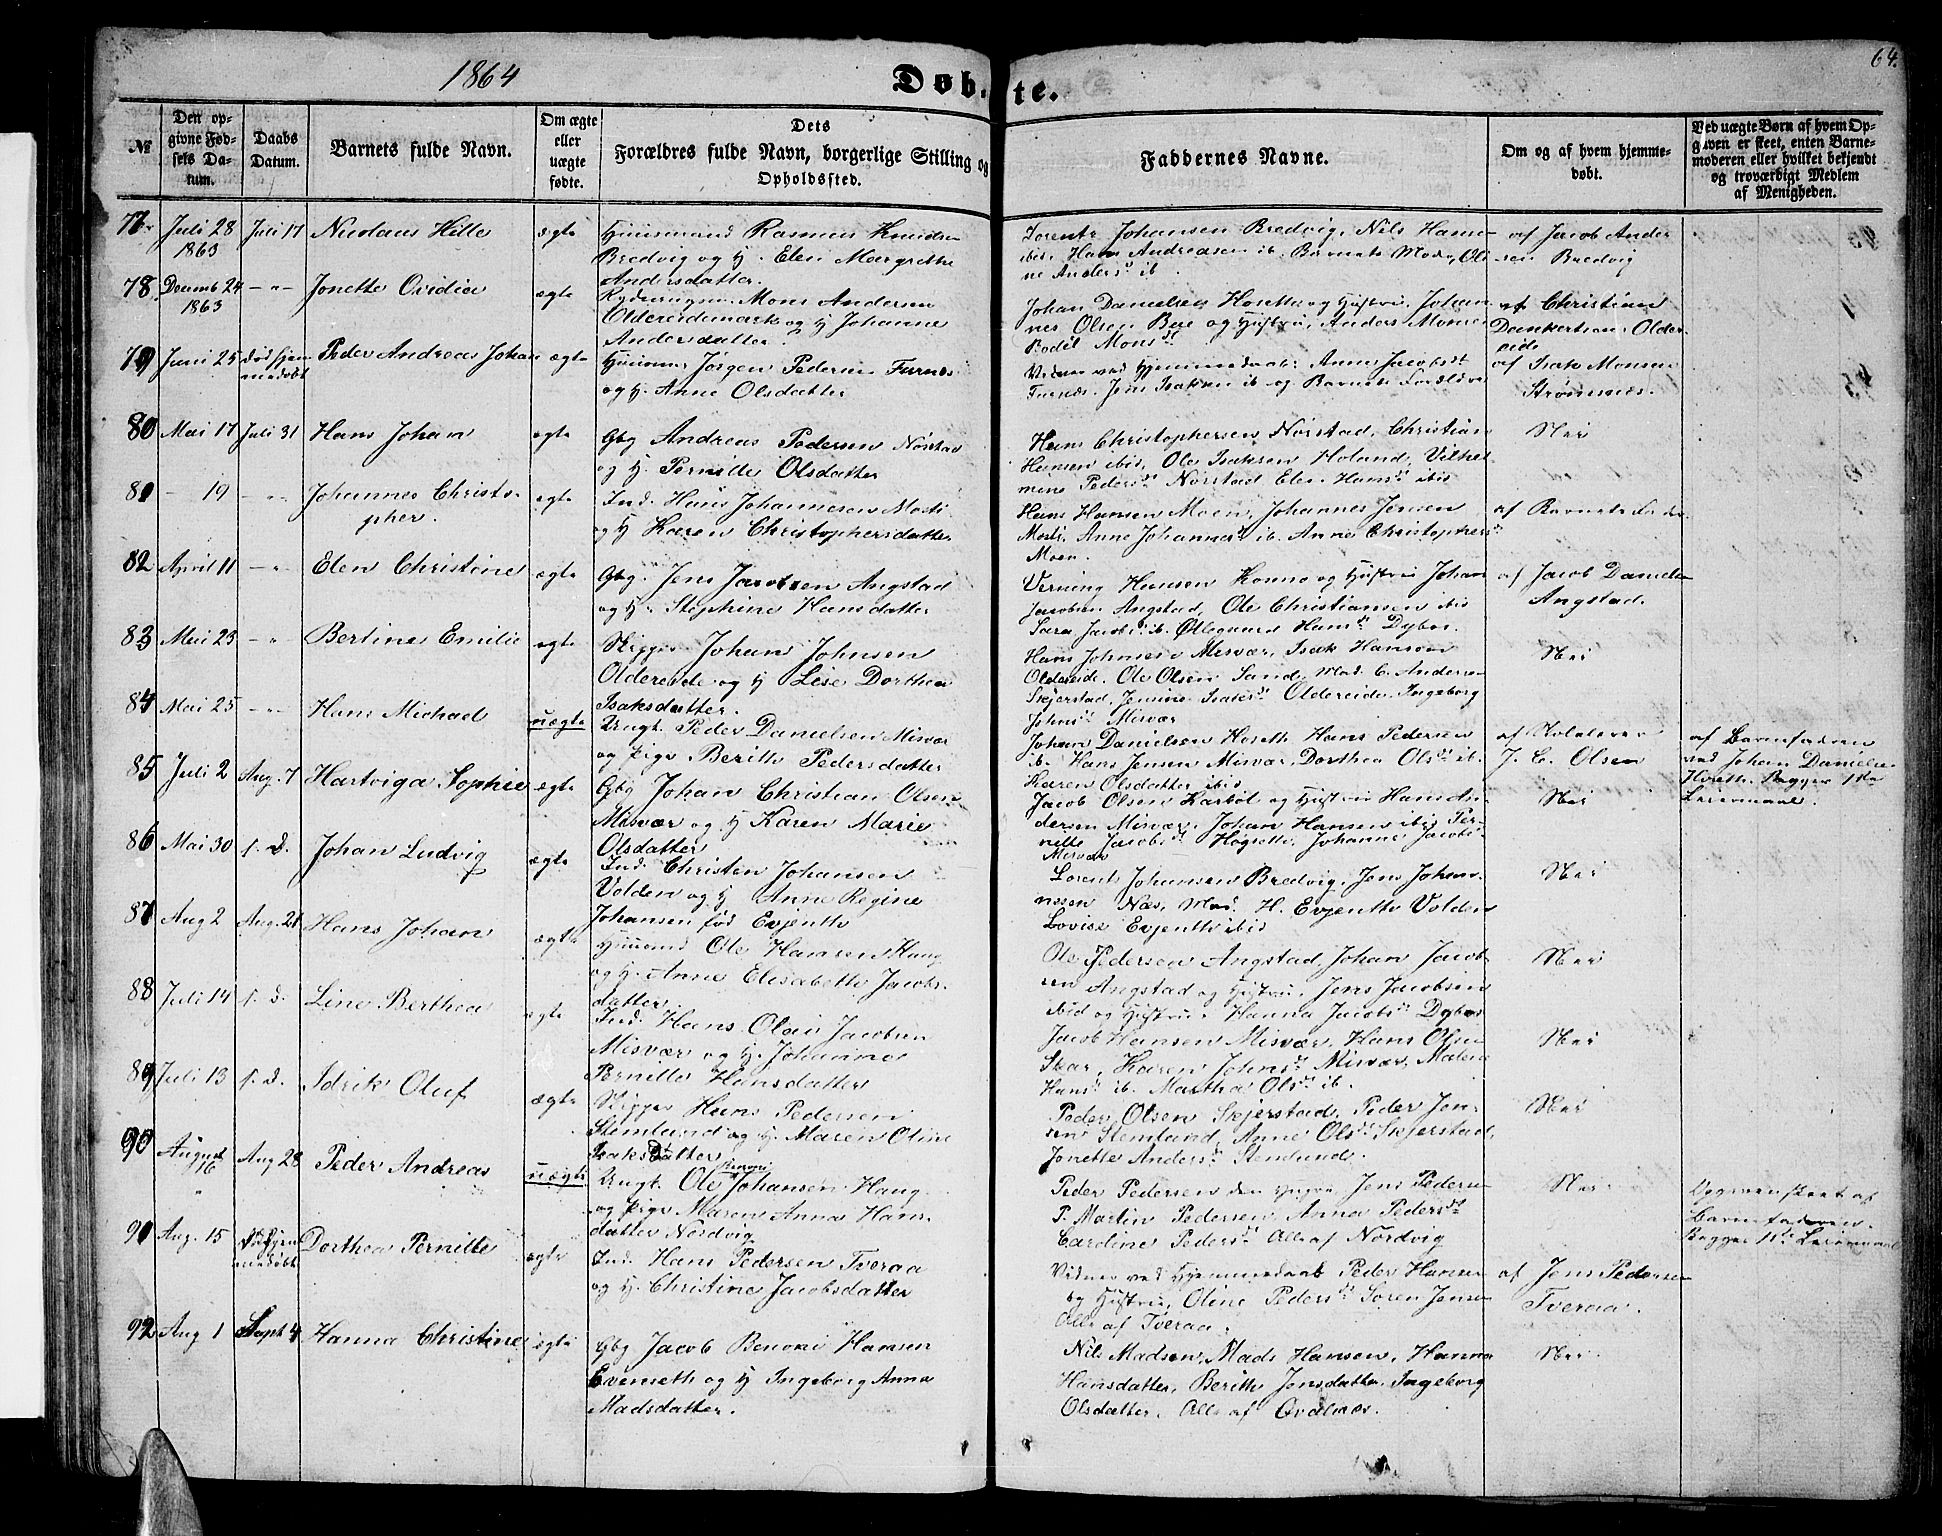 1864
Döbte.
64.
№
Den op-
givne Fød-
sels Da-
tum.
Daabs
Datum.
Barnets fulde Navn.
Om ægte
eller
uægte
fødte.
Dets
Forældres fulde Navn, borgerlige Stilling og
Opholdssted.
Faddernes Navne.
Om og af hvem hjemme-
døbt.
Ved uægte Børn af hvem Op-
given er skeet, enten Barne-
moderen eller hvilket bekjendt
og troværdigt Medlem
af Menigheden.
77
Juli 28
1863
Juli 17
Nicolaus Hille
ægte
Huusmand Rasmus Knudsen
Bredvig og H. Elen Margrethe
Andersdatter.
Lorents Johansen Bredvig, Nils Hansen
ibid, Hans Andreasen ib. Barnets Moder, Oli
ne Andersd ib.
af Jacob Ander
sen Bredvig
78
Decemb 24
1863
— " —
Jonette Ovidia
ægte
Mons Andersen
Oldereidemark og H Johanne
Andersdatter.
Johan Danielsen Hoseth og Hustru, Johan
nes Olsen Bee og Hustru, Anders Monse
Bodil Monsd
af Christian
Dankertsen Older
eide
79
Juni 25
død hjem
medøbt
Peder Andreas Johan
ægte
Huusm. Jørgen Pedersen Furnæs
og H. Anne Olsdatter
Vidner ved Hjemmedaab: Anne Jacobsdt
Furnæs. Jens Isaksen ib og Barnets Forældre
af Isak Monsen
Strømnæs.
80
Mai 17
Juli 31
Hans Johan
ægte
Gbg Andreas Pedersen Nørstad
og H. Pernille Olsdatter
Hans Christophersen Nørstad, Christian
Hansen ibid, Ole Isaksen Holand, Vilhel
mine Pedersd Nørstad Elen Hansd ibid
Nei
81
— 19
— " —
Johannes Christo-
pher.
ægte
Ind. Hans Johannesen Mosti
og H Karen Christophersdatter
Hans Hansen Moen, Johannes Jensen
Mosti, Anne Johannesd ib. Anne Christophersd
Moen
af Barnets Fader
82
April 11
— " —
Elen Christine
ægte
Gbg. Jens Jacobsen Angstad
og H. Stephine Hansdatter
Verning Hansen Konno og Hustru Johan
Jacobsen Angstad, Ole Christiansen ibid
Sara Jacobsd ib. Øllegaard Hansd Dybos.
af Jacob Daniels
Angstad.
83
Mai 23
— " —
Bertine Emilie
ægte
Skipper Johan Johnsen
Oldereide og H Lise Dorthea
Isaksdatter.
Hans Johnsen Misvær, Isak Hansen
Oldereide. Ole Olsen Sand, Mad. C. Andersen
Skjerstad, Jensine Isaksd Oldereide. Ingeborg
Johnsd Misvær
Nei
84
Mai 25
— " —
Hans Michael
uægte
Ungk. Peder Danielsen Misvær
og Pige Berith Pedersdatter
Johan Danielsen Hoseth Hans Pedersen
ib. Hans Jensen Misvær, Dorthea Olsd ib.
Karen Olsdatter ibid
af Skolelærer
J. C. Olsen
af Barnefaderen
ved Johan Daniels
Hoseth. Begges 1ste
Leiermaal.
85
Juli 2
Aug. 7
Hartviga Sophie
ægte
Gbg Johan Christian Olsen
Misvær og H Karen Marie
Olsdatter
Jacob Olsen Karbøl og Hustru Hans An
dersen Misvær. Johan Hansen ibid Per
nelle Jacobsd Høgseth, Johanne Jacobsd
Misvær
Nei
86
Mai 30
s. d.
Johan Ludvig
ægte
Ind. Christen Johansen
Volden og H Anne Regine
Johansen fød Evjenth
Lorents Johansen Bredvig, Jens Johan
nessen Næs, Mad. H. Evjenth Volden
Lovise Evjenth ibid
Nei
87
Aug 2
Aug. 21
Hans Johan
ægte
Huusmd Ole Hansen Haug
og H. Anne Elisabeth Jacobs-
datter
Ole Pedersen Angstad, Johan Jacob
sen Angstad og Hustru, Jens Jacobsen
ibid og Hustru, Hanna Jacobsd Dybos
Nei
88
Juli 14
s. d.
Line Berthea
ægte
Ind. Hans Olai Jacobsen
Misvær og H. Johanna
Pernille Hansdatter
Jacob Hansen Misvær, Hans Olsen
Skar, Karen Johnsd Misvær, Malena
Hansd ib. Martha Olsd ib.
Nei
89
Juli 13
s. d.
Idrik Oluf
ægte
Skipper Hans Pedersen
Stemland og H. Maren Oline
Isaksdatter
Peder Olsen Skjerstad, Peder Jen-
sen Stemland, Anne Olsd Skjerstad,
Jonette Andersd Stemlund.
Nei
90
August
16
Aug 28
Peder Andreas
uægte
Ungk. Ole Benoni Johansen Haug
og Pige Maren Anna Hans-
datter Nordvig
Peder Pedersen den yngre Jens Pedersen
P. Martin Pedersen Anna Pedersdt
Caroline Pedersd Alle af Nordvig
Nei
Opgiven skeet af
Barnefaderen.
Begges 1ste Leiermaal
91
Aug. 15
død hjem
medøbt
Dorthea Pernille
ægte
Ind. Hans Pedersen Tveraa
og H. Christine Jacobsdatter
Vidner ved Hjemmedaab Peder Hansen
og Hustru, Oline Pedersd Søren Jensen
Alle af Tveraa.
af Jens Pedersen
Tveraa.
92
Aug 1
Sept 4
Hanna Christine
ægte
Gbg Jacob Benoni Hansen
Evenseth og H Ingeborg Anna
Madsdatter.
Nils Madsen, Mads Hansen, Hanna
Hansdatter, Berith Jensdatter, Ingeborg
Olsdatter, Alle af Øvalnes.
Nei